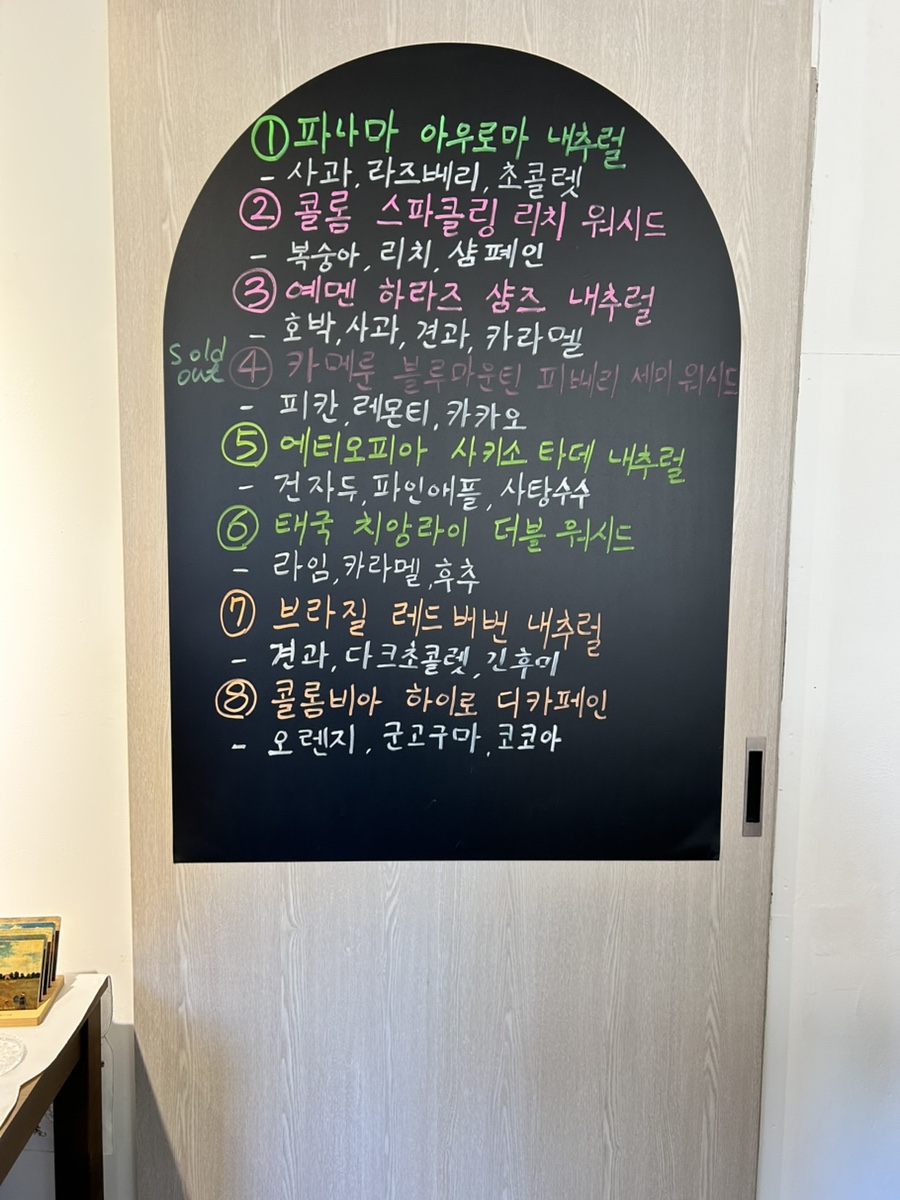 ① 파나마 아우로마 내추럴
- 사과, 라즈베리, 초콜렛
② 콜롬 스파클링 리치 워시드
- 복숭아, 리치, 샴페인
③ 예멘 하라즈 샴즈 내추럴
- 호박, 사과, 견과, 카라멜
Sold out ④ 카메룬 블루마운틴 피베리 세미 워시드
- 피칸, 레몬티, 카카오
⑤ 에티오피아 사키소 타데 내추럴
- 건자두, 파인애플, 사탕수수
⑥ 태국 치앙라이 더블 워시드
- 라임, 카라멜, 후추
⑦ 브라질 레드 버번 내추럴
- 견과, 다크초콜렛, 긴후미
⑧ 콜롬비아 하이로 디카페인
- 오렌지, 군고구마, 코코아